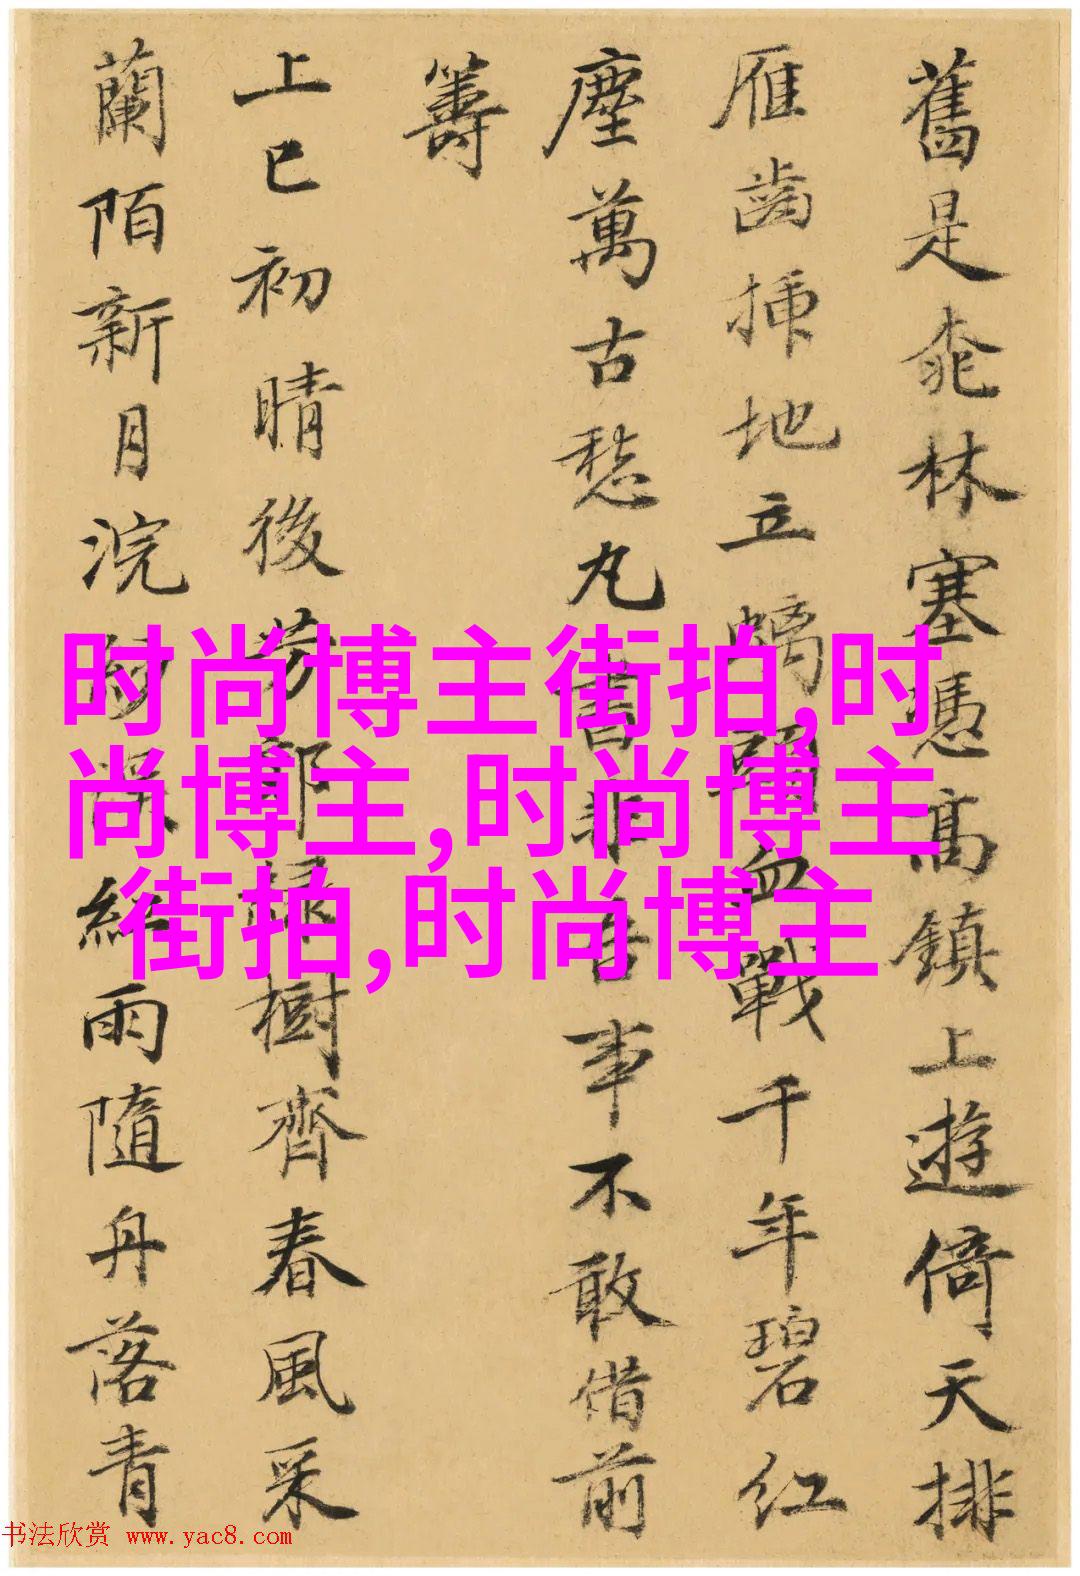 舊是桃林塞憑高鎮上遊倚天排
雁齒插地立螭血戰千年碧紅
塵萬古愁丸書非吾事不敢借前
籌
上巳初晴後芳郊綠樹齊春風采
蘭陌新月浣雨隨舟落青
时尚博主街拍,时
尚博主,时尚博主
街拍,时尚博主
书法欣赏 www.yac8.com